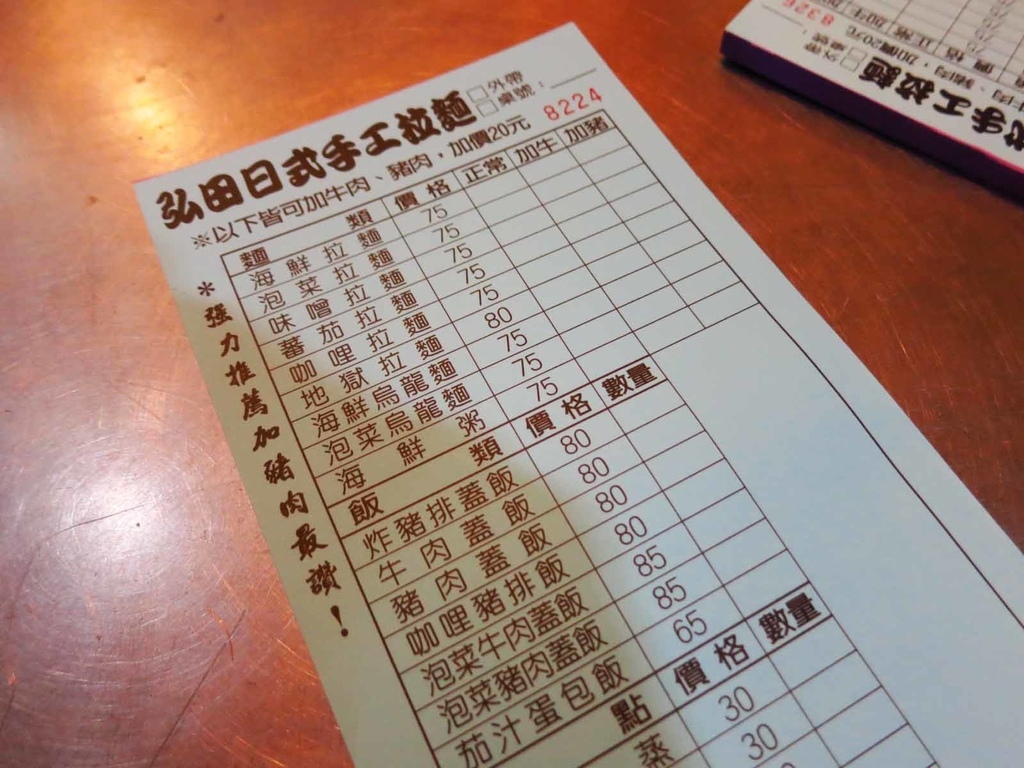 弘田日式手工拉麵
□外帶
□桌號：
8224
※以下皆可加牛肉、豬肉，加價20元
麵類 價格 正常 加牛 加豬
海鮮拉麵 75
泡菜拉麵 75
味噌拉麵 75
蕃茄拉麵 75
咖哩拉麵 75
地獄拉麵 80
海鮮烏龍麵 75
泡菜烏龍麵 75
海鮮粥 75
飯類 價格 數量
炸豬排蓋飯 80
牛肉蓋飯 80
豬肉蓋飯 80
咖哩豬排飯 80
泡菜牛肉蓋飯 85
泡菜豬肉蓋飯 85
茄汁蛋包飯 65
點 價格 數量
蒸 30
30
*強力推薦加豬肉最讚！
8326
□外帶
□桌號：
式手工拉麵
豬肉，加價20元
價格 正常 加牛